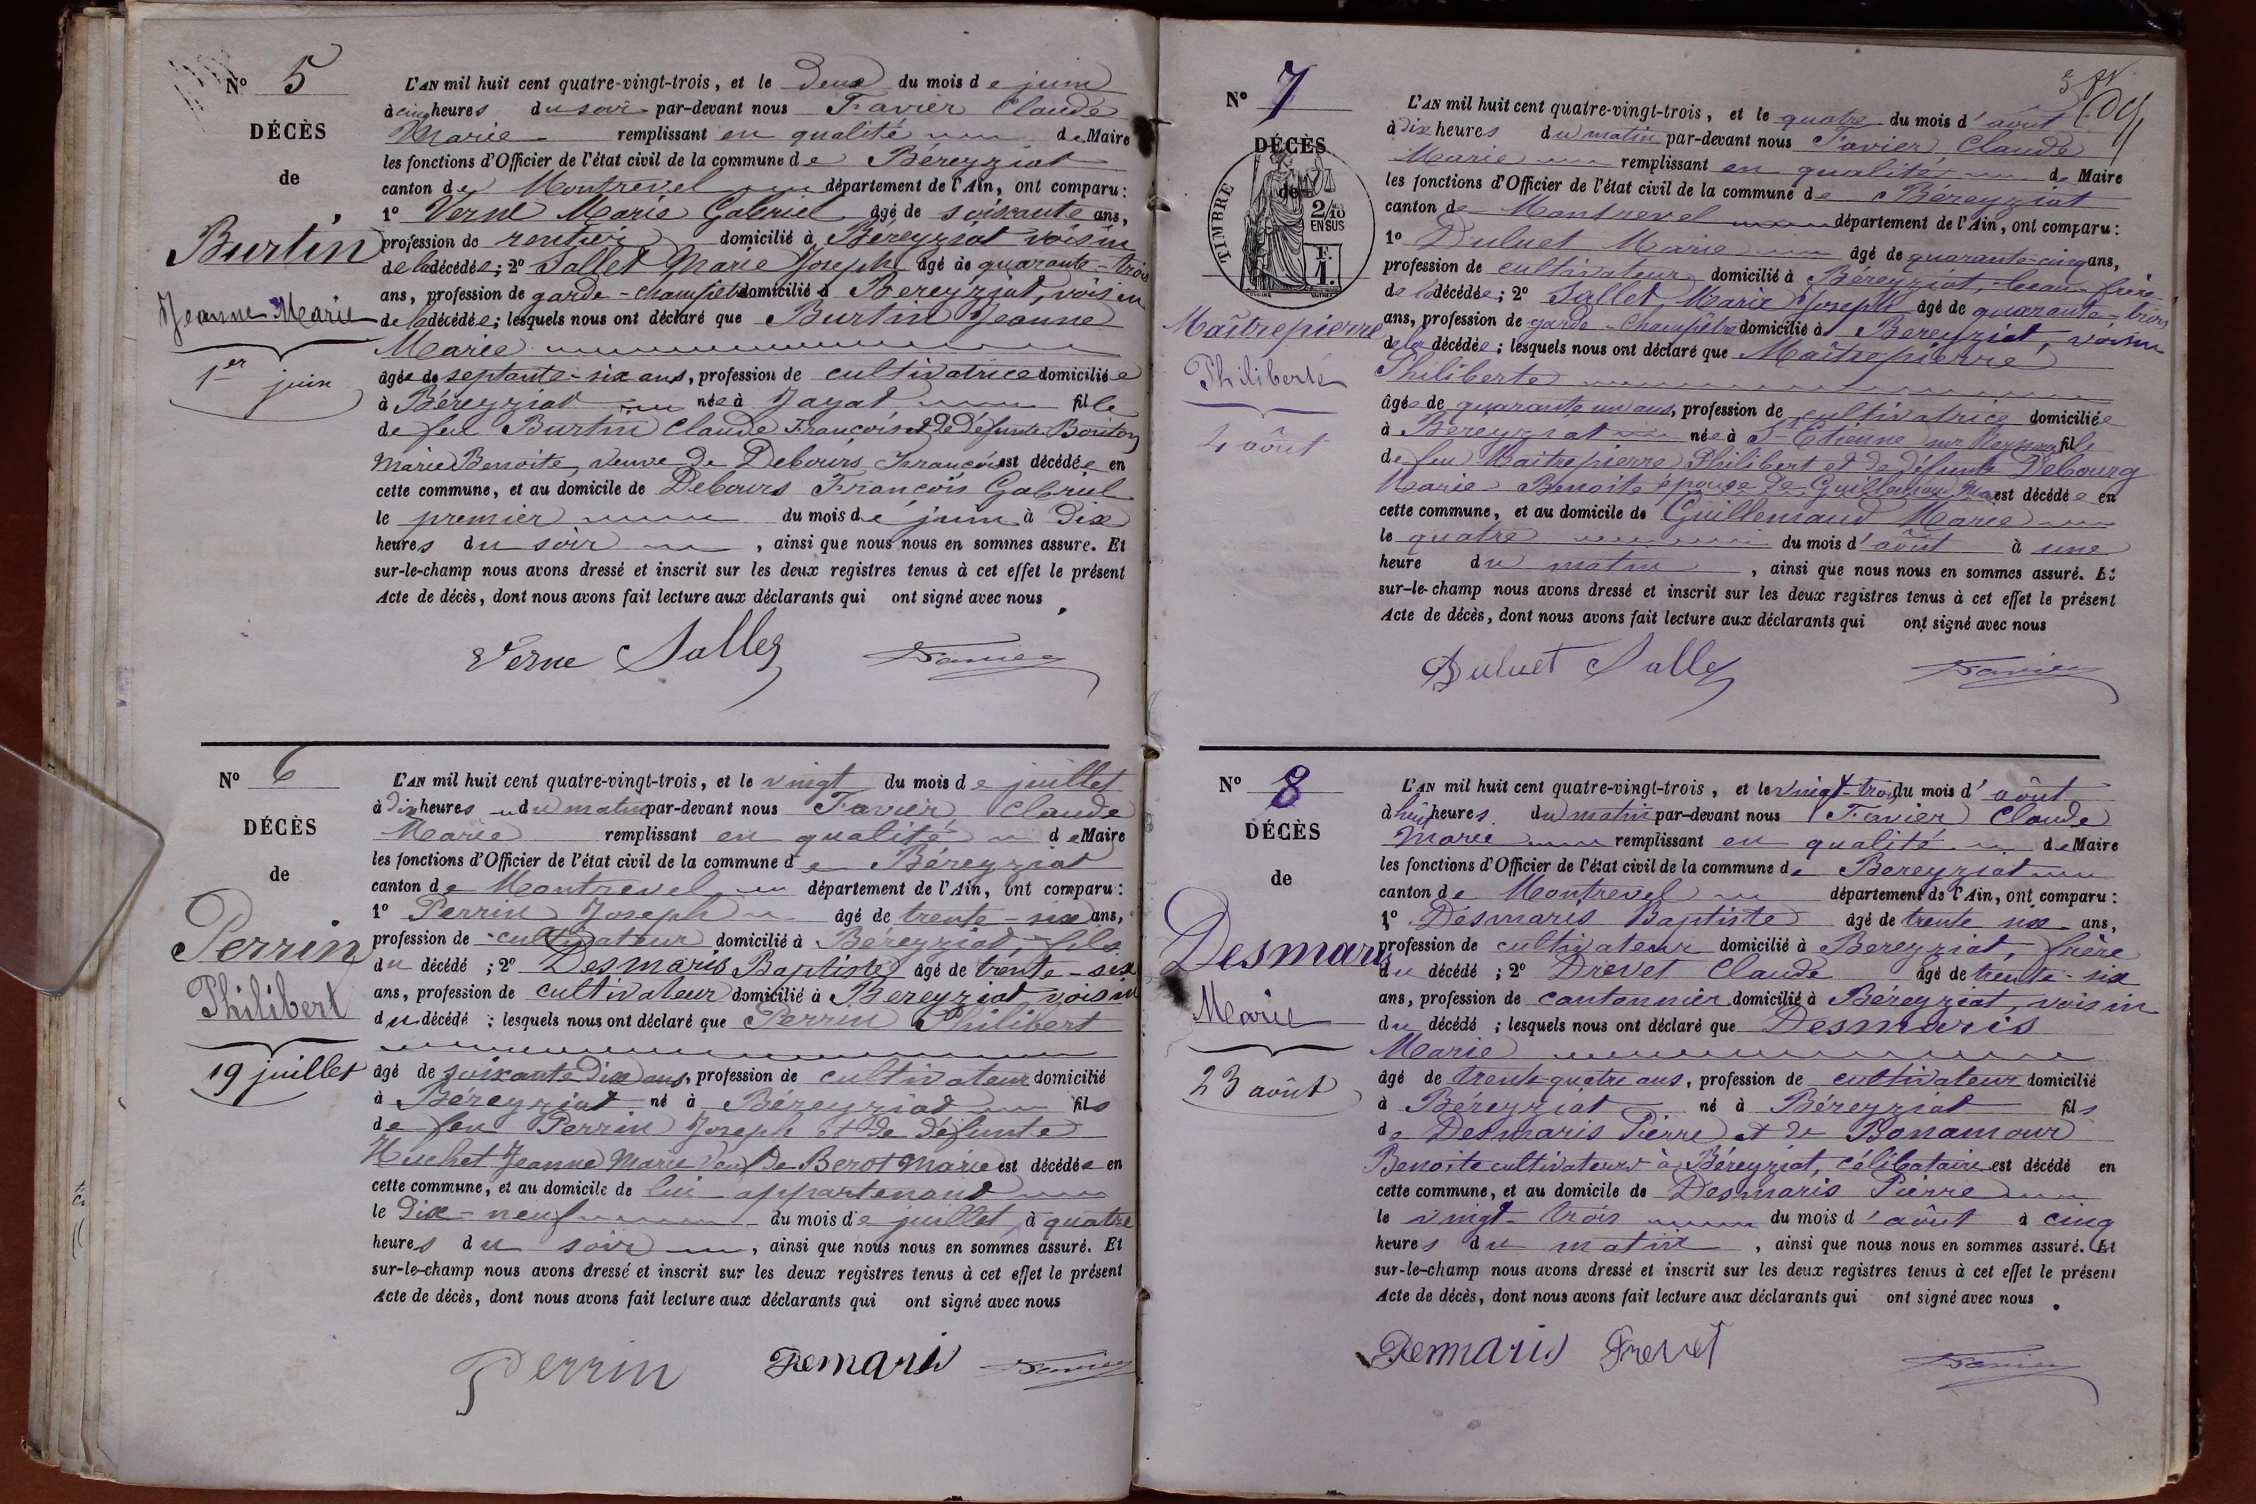 Nº 5
DÉCÈS
de
Burtin
Jeanne Marie
1er juin
L'AN mil huit cent quatre-vingt-trois, et le deux du mois de juin
à cinq heures du soir par-devant nous Favier Claude
Marie remplissant en qualité de Maire
les fonctions d'Officier de l'état civil de la commune de Béreyziat
canton de Montrevel département de l'Ain, ont comparu :
1º Verne Marie Gabriel âgé de soixante ans,
profession de rentier domicilié à Béreyziat voisin
de la décédée ; 2º Sallet Marie Joseph âgé de quarante-trois
ans, profession de garde-champêtre domicilié à Bereyziat, voisin
de la décédée ; lesquels nous ont déclaré que Burtin Jeanne
Marie
âgée de septante-six ans, profession de cultivatrice domiciliée
à Béreyziat née à Jayat fille
de feu Burtin Claude François et de défunte Bouton
Marie Benoite, veuve de Debours François est décédée en
cette commune, et au domicile de Debours François Gabriel
le premier du mois de juin à dix
heures du soir, ainsi que nous nous en sommes assuré. Et
sur-le-champ nous avons dressé et inscrit sur les deux registres tenus à cet effet le présent
Acte de décès, dont nous avons fait lecture aux déclarants qui ont signé avec nous.
Verne Sallet Favier
Nº 6
DÉCÈS
de
Perrin
Philibert
19 juillet
L'AN mil huit cent quatre-vingt-trois, et le vingt du mois de juillet
à dix heures du matin par-devant nous Favier Claude
Marie remplissant en qualité de Maire
les fonctions d'Officier de l'état civil de la commune de Béreyziat
canton de Montrevel département de l'Ain, ont comparu :
1º Perrin Joseph âgé de trente-six ans,
profession de cultivateur domicilié à Béreyziat, fils
du décédé ; 2º Desmaris Baptiste âgé de trente-six
ans, profession de cultivateur domicilié à Bereyziat voisin
du décédé ; lesquels nous ont déclaré que Perrin Philibert
âgé de soixante dix ans, profession de cultivateur domicilié
à Béreyziat né à Béreyziat fils
de feu Perrin Joseph et de défunte
Huchet Jeanne Marie Veuf de Berot Marie est décédée en
cette commune, et au domicile de lui appartenant
le dix-neuf du mois de juillet à quatre
heures du soir, ainsi que nous nous en sommes assuré. Et
sur-le-champ nous avons dressé et inscrit sur les deux registres tenus à cet effet le présent
Acte de décès, dont nous avons fait lecture aux déclarants qui ont signé avec nous
Perrin Demaris Favier
Nº 7
DÉCÈS
de
TIMBRE
2/10
EN SUS
F.
1.
Maîtrepierre
Philiberte
4 août
L'AN mil huit cent quatre-vingt-trois, et le quatre du mois d'août
à dix heures du matin par-devant nous Favier Claude
Marie remplissant en qualité de Maire
les fonctions d'Officier de l'état civil de la commune de Béreyziat
canton de Montrevel département de l'Ain, ont comparu :
1º Duluet Marie âgé de quarante-cinq ans,
profession de cultivateur domicilié à Béreyziat, beau-frère
de la décédée ; 2º Sallet Marie Joseph âgé de quarante-trois
ans, profession de garde-Champêtre domicilié à Bereyziat, voisin
de la décédée ; lesquels nous ont déclaré que Maîtrepierre
Philiberte
âgée de quarante un ans, profession de cultivatrice domiciliée
à Béreyziat née à St-Etienne sur Reyssouze fille
de feu Maitrepierre Philibert et de défunte Debourg
Marie Benoite épouse de Guillemaud Marie est décédée en
cette commune, et au domicile de Guillemaud Marie
le quatre du mois d'août à une
heure du matin, ainsi que nous nous en sommes assuré. Et
sur-le-champ nous avons dressé et inscrit sur les deux registres tenus à cet effet le présent
Acte de décès, dont nous avons fait lecture aux déclarants qui ont signé avec nous
Duluet Sallet Favier
Nº 8
DÉCÈS
de
Desmaris
Marie
23 août
L'AN mil huit cent quatre-vingt-trois, et le vingt-trois du mois d'août
à huit heures du matin par-devant nous Favier Claude
Marie remplissant en qualité de Maire
les fonctions d'Officier de l'état civil de la commune de Bereyziat
canton de Montrevel département de l'Ain, ont comparu :
1º Desmaris Baptiste âgé de trente six ans,
profession de cultivateur domicilié à Bereyziat, frère
du décédé ; 2º Drevet Claude âgé de trente-six
ans, profession de cantonnier domicilié à Béreyziat, voisin
du décédé ; lesquels nous ont déclaré que Desmaris
Marie
âgé de trente quatre ans, profession de cultivateur domicilié
à Béreyziat né à Béreyziat fils
de Desmaris Pierre et de Bonamour
Benoite cultivateurs à Béreyziat, célibataire est décédé en
cette commune, et au domicile de Desmaris Pierre
le vingt-trois du mois d'août à cinq
heures du matin, ainsi que nous nous en sommes assuré. Et
sur-le-champ nous avons dressé et inscrit sur les deux registres tenus à cet effet le présent
Acte de décès, dont nous avons fait lecture aux déclarants qui ont signé avec nous.
Demaris Drevet Favier